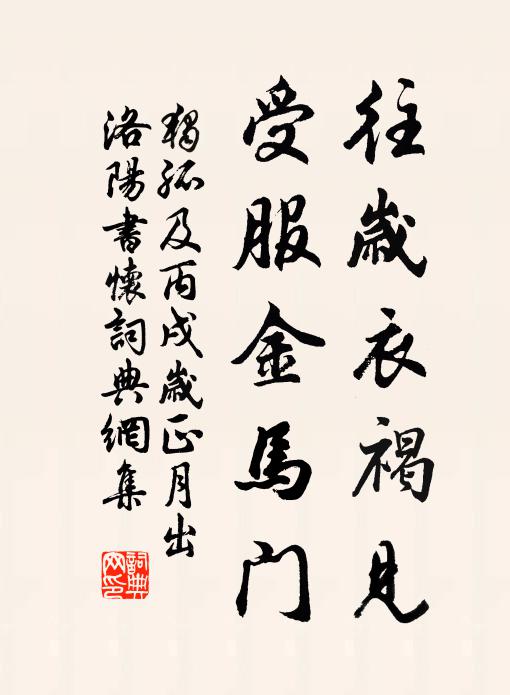 往歲衣褐見
受服金馬门
獨孤及丙戌歲正月出
洛陽書懷詞典網集
詞典網印